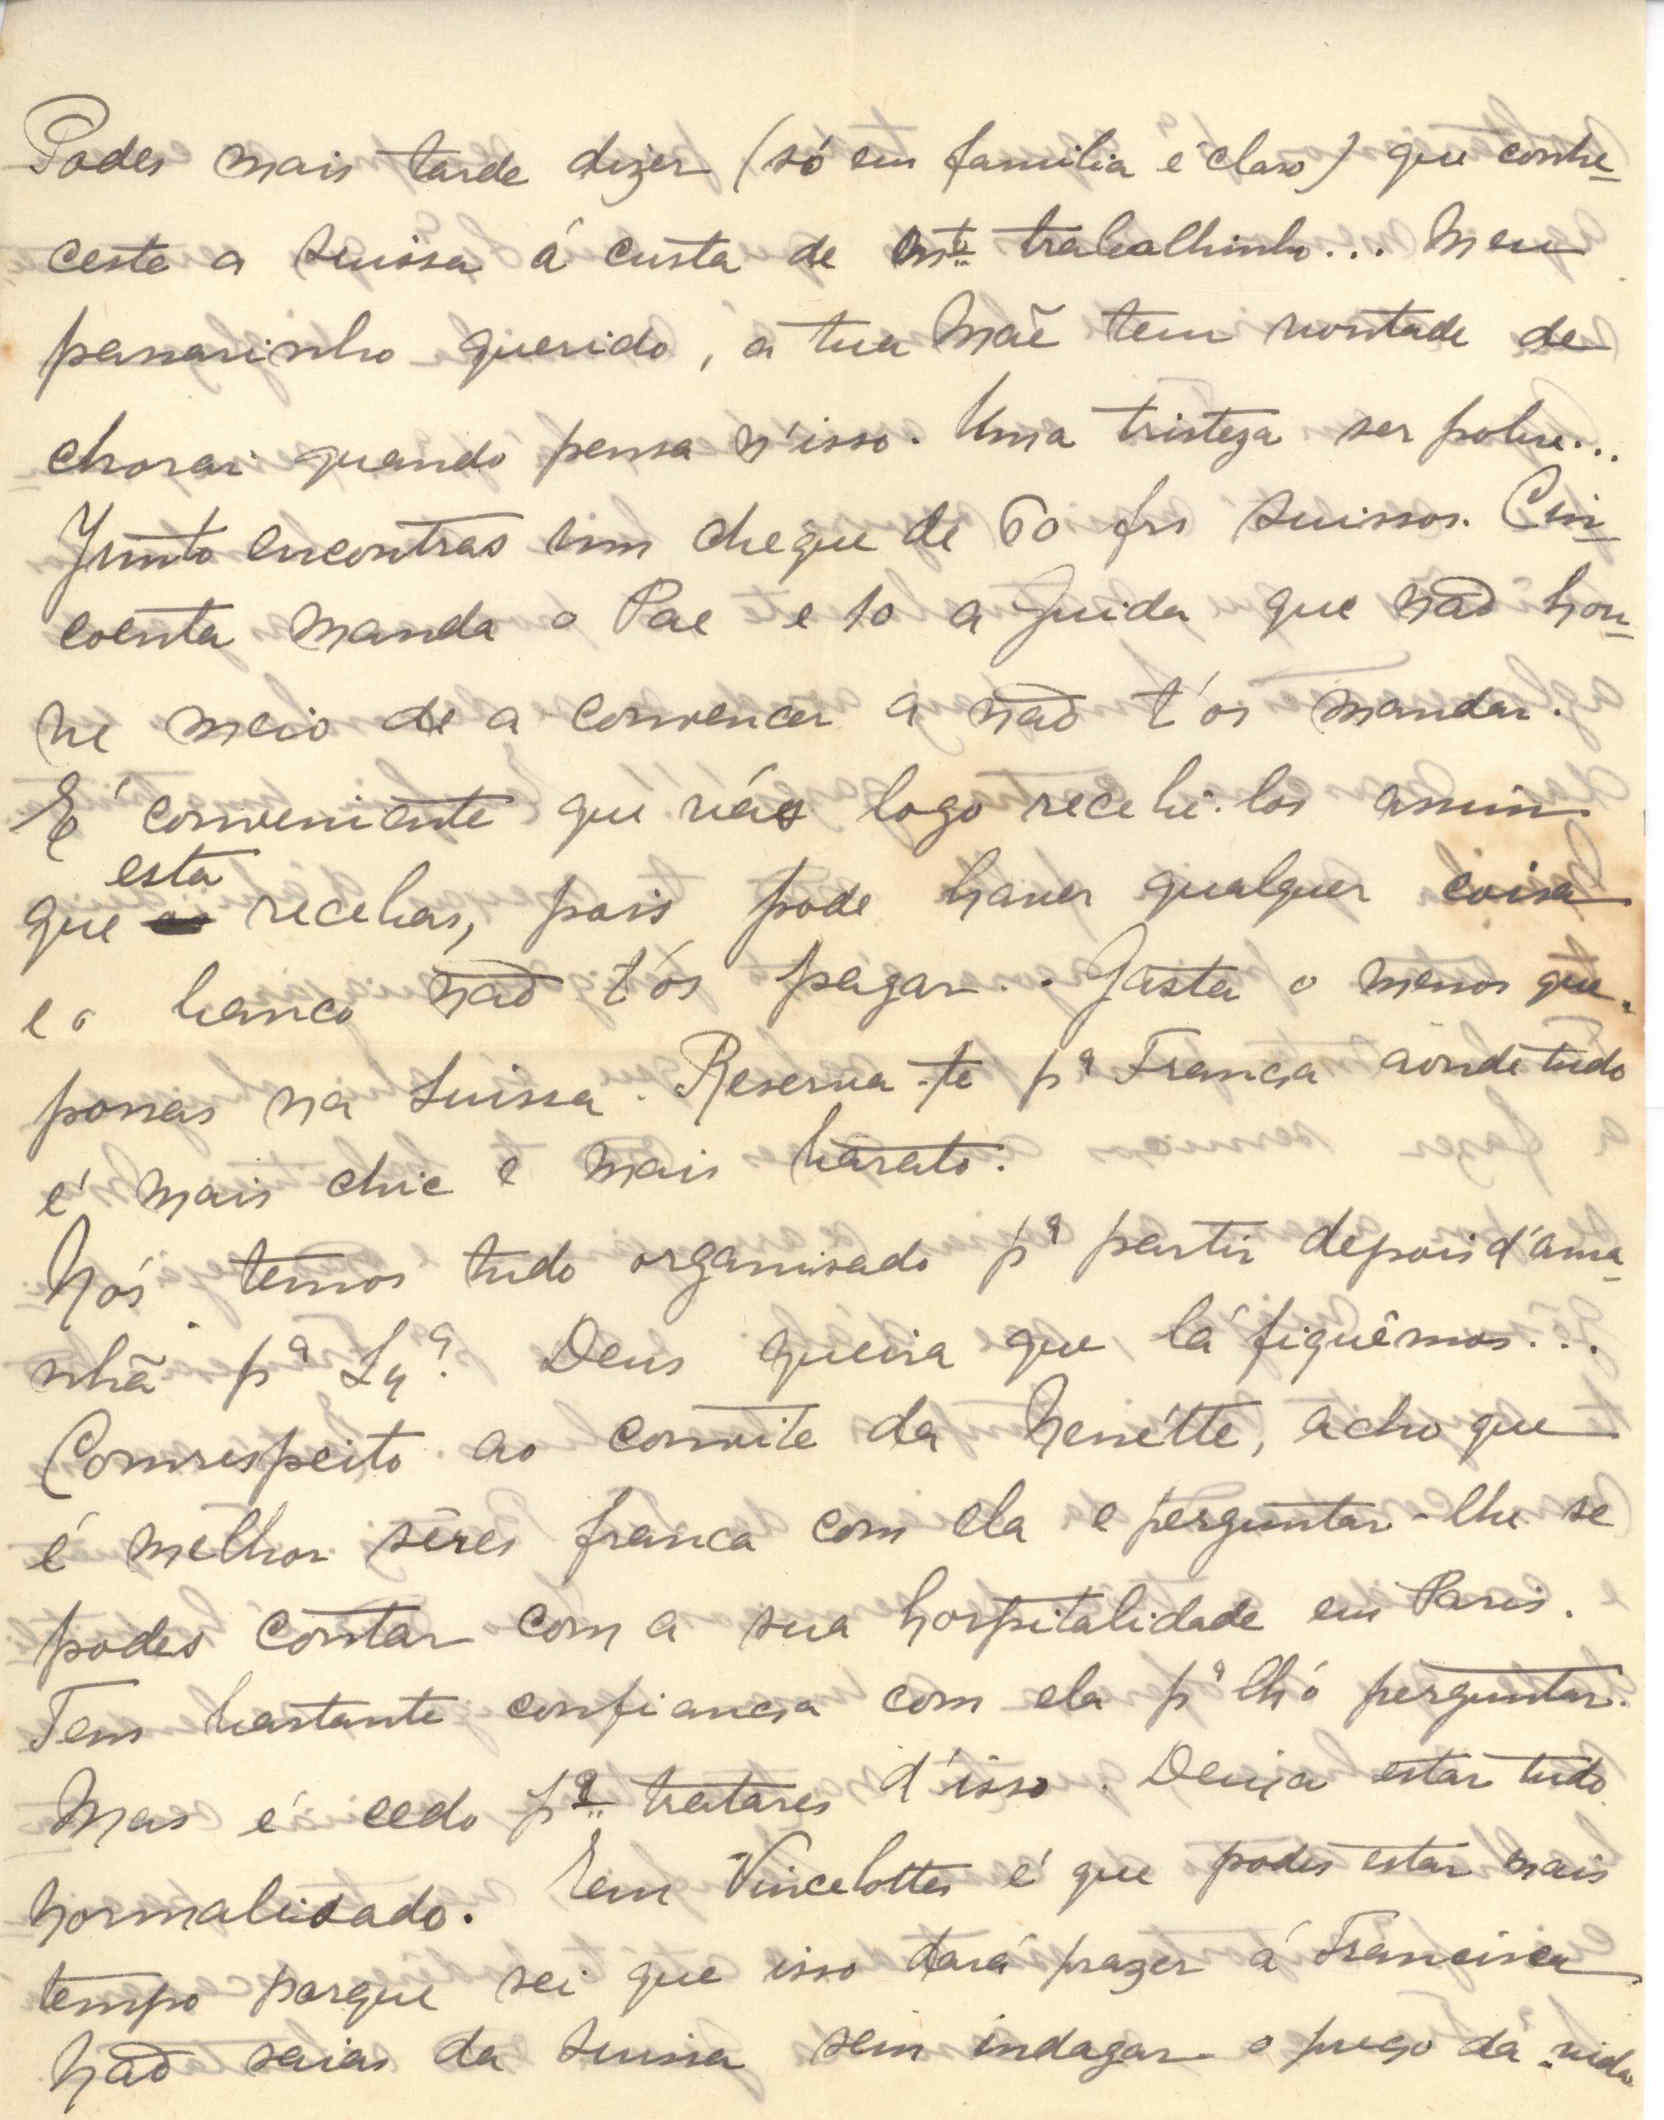 Podes mais tarde dizer (só em familia é claro) que conhe-
ceste a Suissa á custa de mto trabalhinho... Meu
passarinho querido, a tua Mãe tem vontade de
chorar quando pensa n'isso. Uma tristeza ser pobre...
Junto encontras um cheque de 60 frs suissos. Cin-
coenta manda o Pae e 10 a Guida que não hou-
ve meio de a convencer a não t'os mandar.
É conveniente que vás logo recebê-los assim
esta
que recebas, pois pode haver qualquer coisa
e o banco não t'os pagar.. Gasta o menos que
possas na Suissa. Reserva-te pª França aonde tudo
é mais chic e mais barato.
Nós temos tudo organisado pª partir depois d'ama-
nhã pª Lxª. Deus queira que lá fiquêmos...
Com respeito ao convite da Nenétte, acho que
é melhor sêres franca com ela e perguntar-lhe se
podes contar com a sua hospitalidade em Paris.
Tens bastante confiança com ela pª lh'o perguntar.
Mas é cedo pª tratares d'isso. Deixa estar tudo
normalisado. Em Vincelottes é que podes estar mais
tempo porque sei que isso dará prazer á Francisca
Não saias da Suissa sem indagar o preço da vida